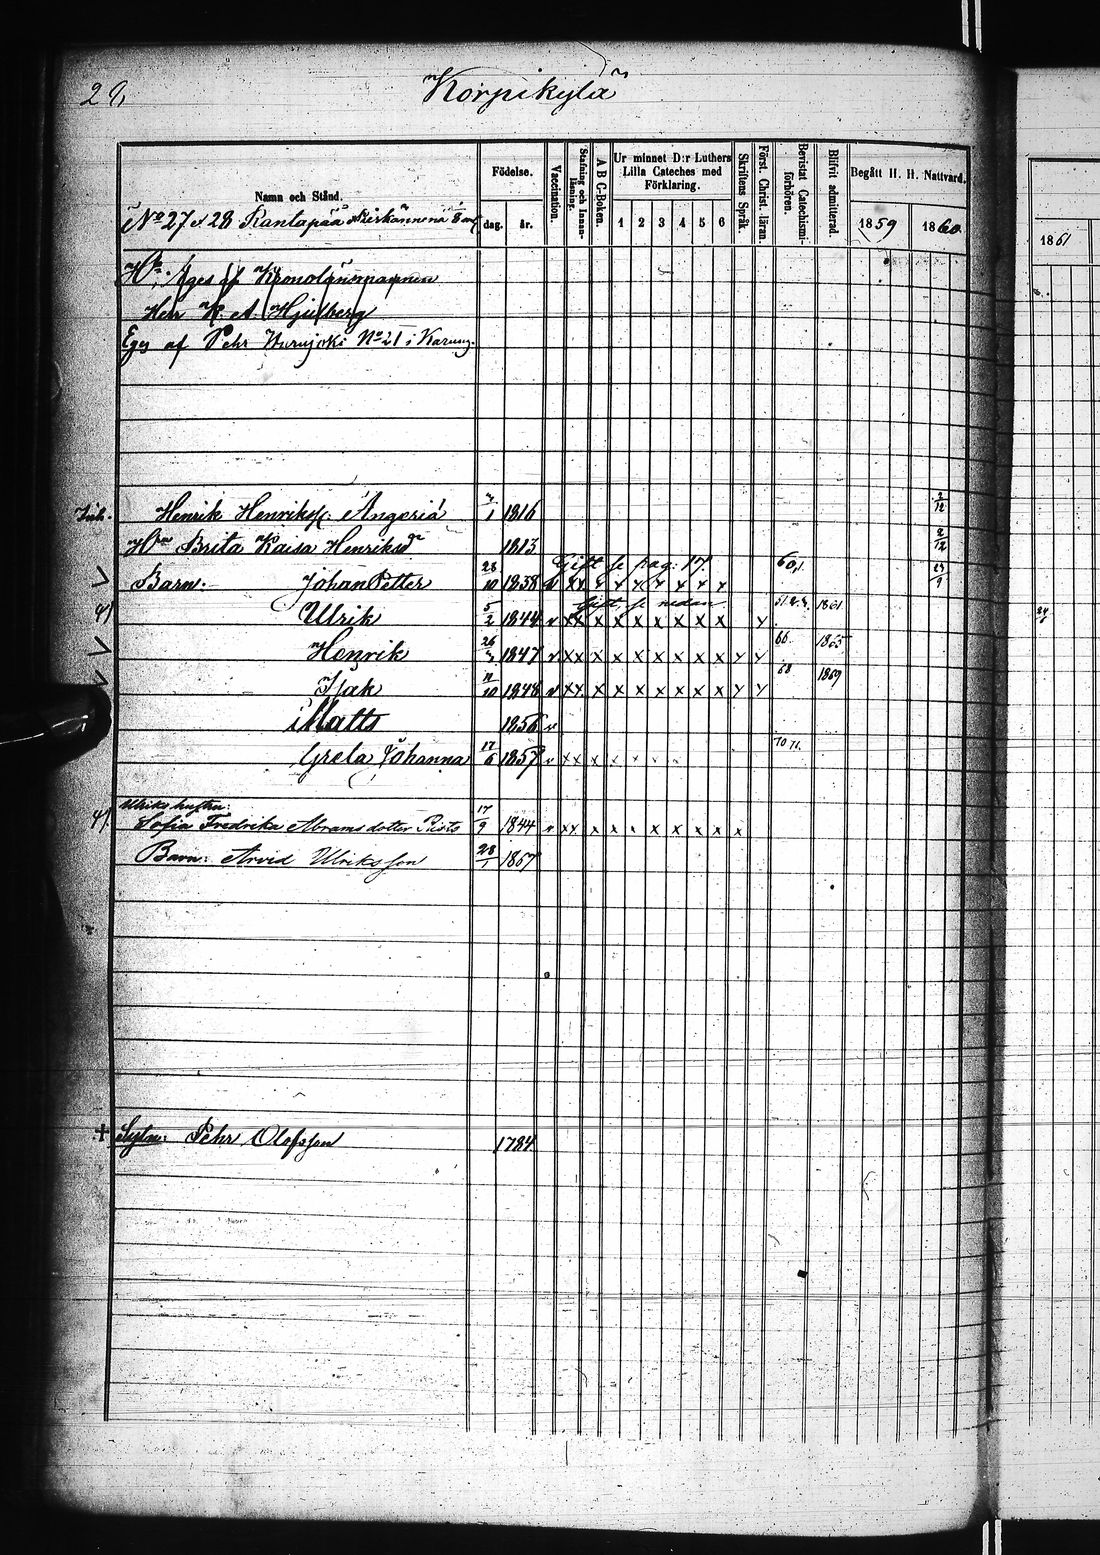 28,
Korpikylä
Namn och Stånd.
Födelse.
dag.
år.
Vaccination.
Stafning och Innan-läsning.
A B C-Boken.
Ur minnet D:r Luthers Lilla Cateches med Förklaring.
1 2 3 4 5 6
Skriftens Språk.
Först. Christ. läran.
Bevistat Catechismi-förhören.
Blifvit admitterad.
Begått H. H. Nattvard.
1859
1860
1861
No 27 & 28 Rantapää
Äges af Kronolänsmannen
Herr K. A. Hjulberg
Eges af Pehr No 21 i Karung.
Inh. Henrik Henriks. Angeriä 1 1816 2/12
Hu Brita Kaisa Henriksdr 1813 2/12
Gift se pag. 17
Barn: Johan Petter 28/10 1838 v xx x x x x x x x 60,1
Gift, se nedan
Ulrik 5/2 1844 v xx x x x x x x x x 1861
Henrik 26 1847 v xx x x x x x x x x x 66 1865
Isak 11/10 1848 v xx x x x x x x x x x 68 1869
Matts 1856 v
Greta Johanna 17/6 1857 v xx x x x x x 70 71.
Ulriks hustru:
Sofia Fredrika Abramsdotter 17/9 1844 v xx x x x x x x x x
Barn: Arvid Ulriksson 28/1 1867
† Sytn: Pehr Olofsson 1784